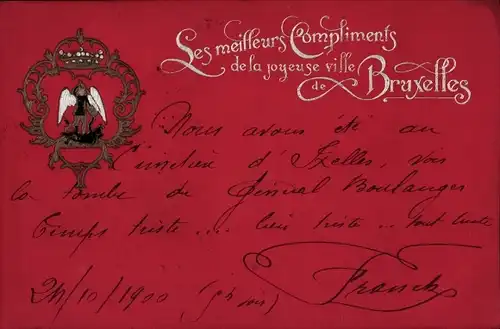 Les meilleurs Compliments
de la joyeuse ville
de Bruxelles
Nous avons été au
Cimetière d'Ixelles, voir
la tombe du Général Boulanger
Temps triste .... lieu triste .. tout triste
Franck
24/10/1900